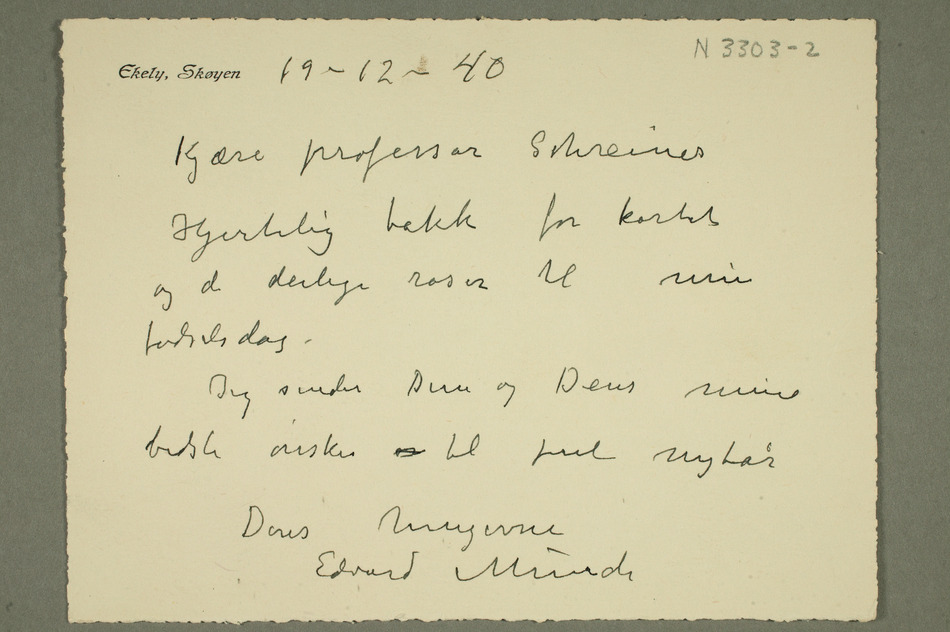 N 3303-2
Ekely, Skøyen 19-12-40
Kjære professor Schreiner
Hjertelig takk for kortet
og de deilige roser til min
fødselsdag.
Jeg sender Dem og Deres mine
bedste ønsker til nytår
Deres hengivne
Edvard Munch